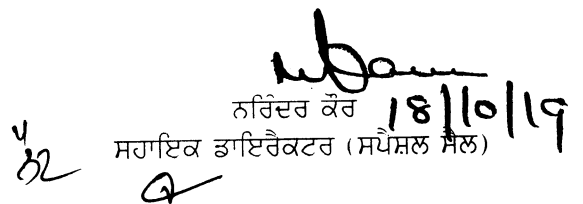 ਨਰਿੰਦਰ ਕੌਰ 18/10/19
ਸਹਾਇਕ ਡਾਇਰੈਕਟਰ (ਸਪੈਸ਼ਲ ਸੈਲ)